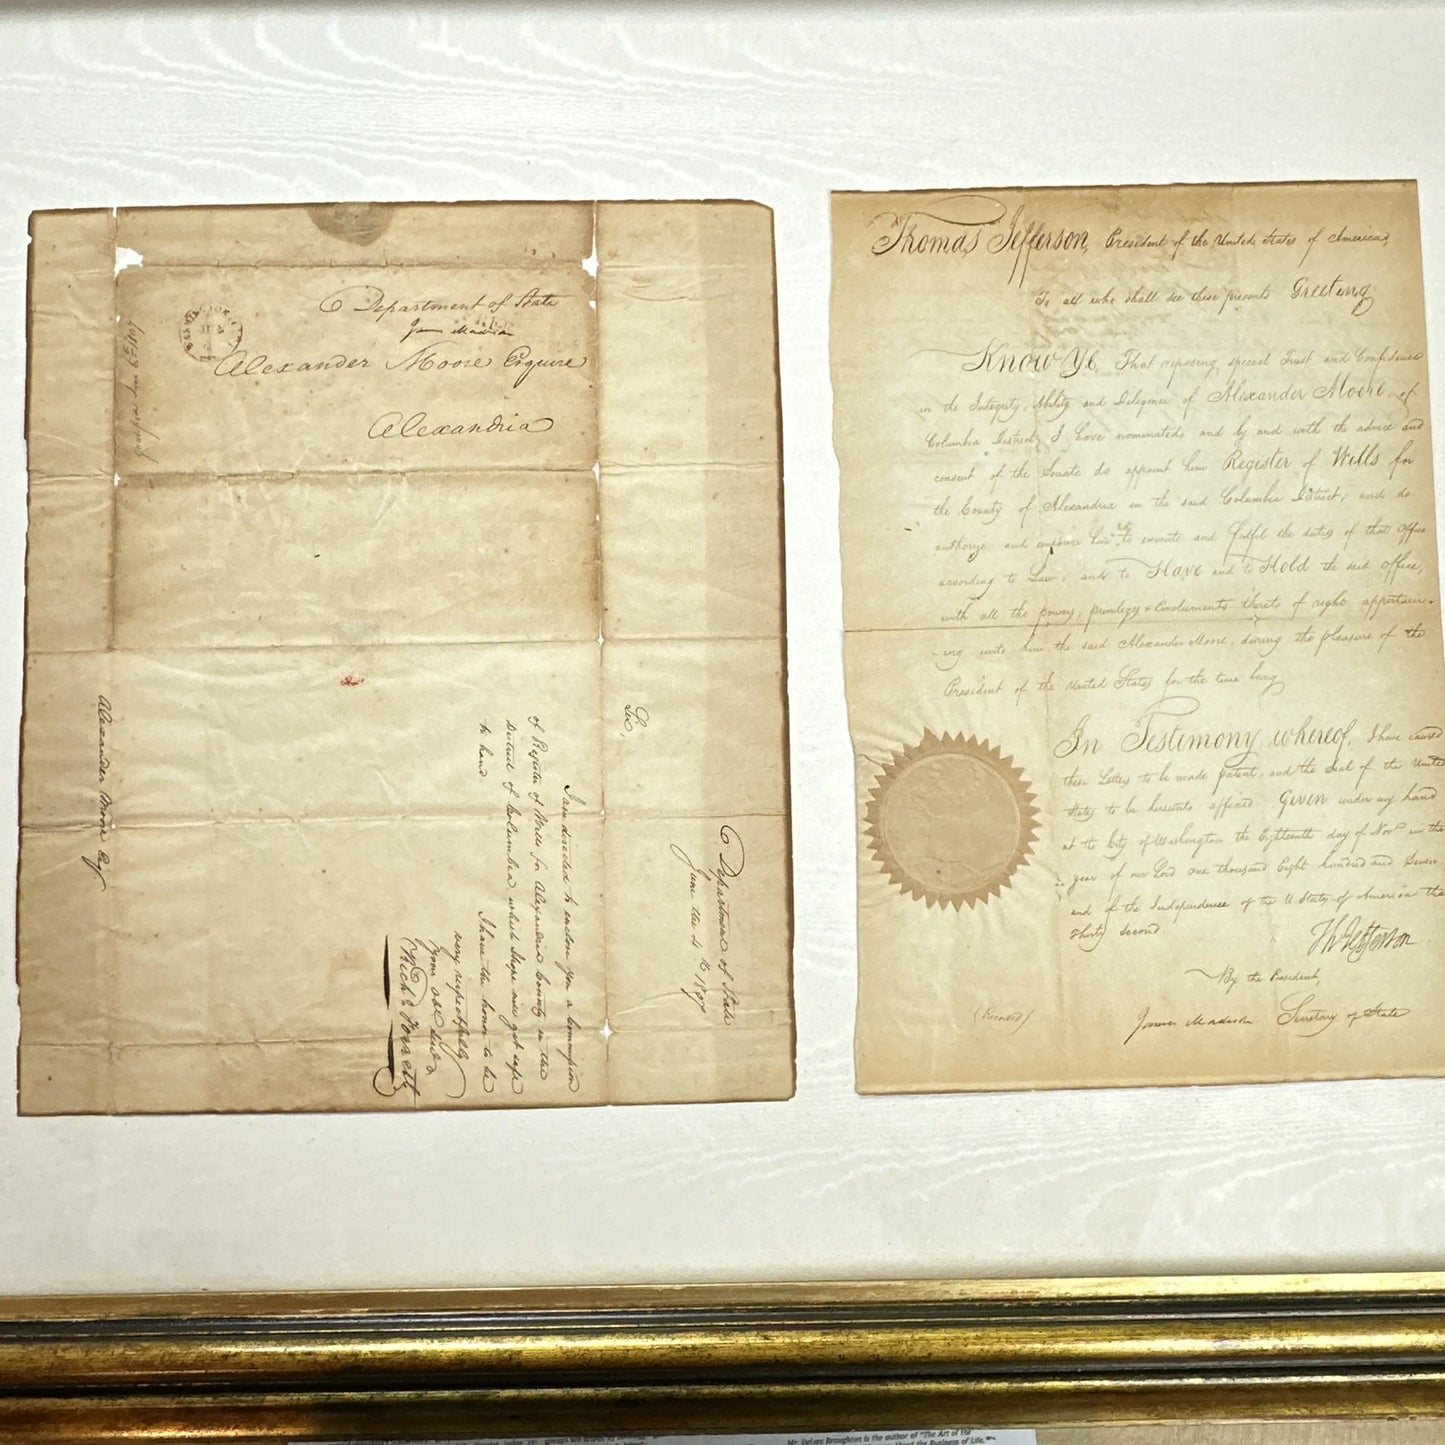 Department of State
James Madison
Alexander Moore Esquire
Alexandria
Alexander Moore Esqr
Department of State
June the 4th 1807
Sir,
I am directed to enclose you a Commission
of Register of Wills for Alexandria County in the
District of Columbia which I hope will get safe
to hand
I have the honor to be
very respectfully
Your obt Servt
Richd Forrest
Thomas Jefferson, President of the United States of America,
To all who shall see these presents Greeting
Know Ye, That reposing special Trust and Confidence
in the Integrity, Ability and Diligence of Alexander Moore, of
Columbia District, I have nominated, and by and with the advice and
consent of the Senate do appoint him Register of Wills for
the County of Alexandria in the said Columbia District; and do
authorize and empower him to execute and fulfil the duties of that Office
according to Law; and to Have and to Hold the said Office,
with all the powers, privileges & Emoluments thereto of right appertain-
-ing unto him the said Alexander Moore, during the pleasure of the
President of the United States for the time being
In Testimony whereof, I have caused
these Letters to be made patent, and the Seal of the United
States to be hereunto affixed Given under my hand
at the City of Washington the Eighteenth day of Novr in the
year of our Lord one thousand Eight hundred and Seven
and of the Independence of the U. States of America the
Thirty second.
Th Jefferson
By the President,
James Madison Secretary of State
(Recorded)
Mr. DeJure Broughton is the author of "The Art of
About the Business of Life."